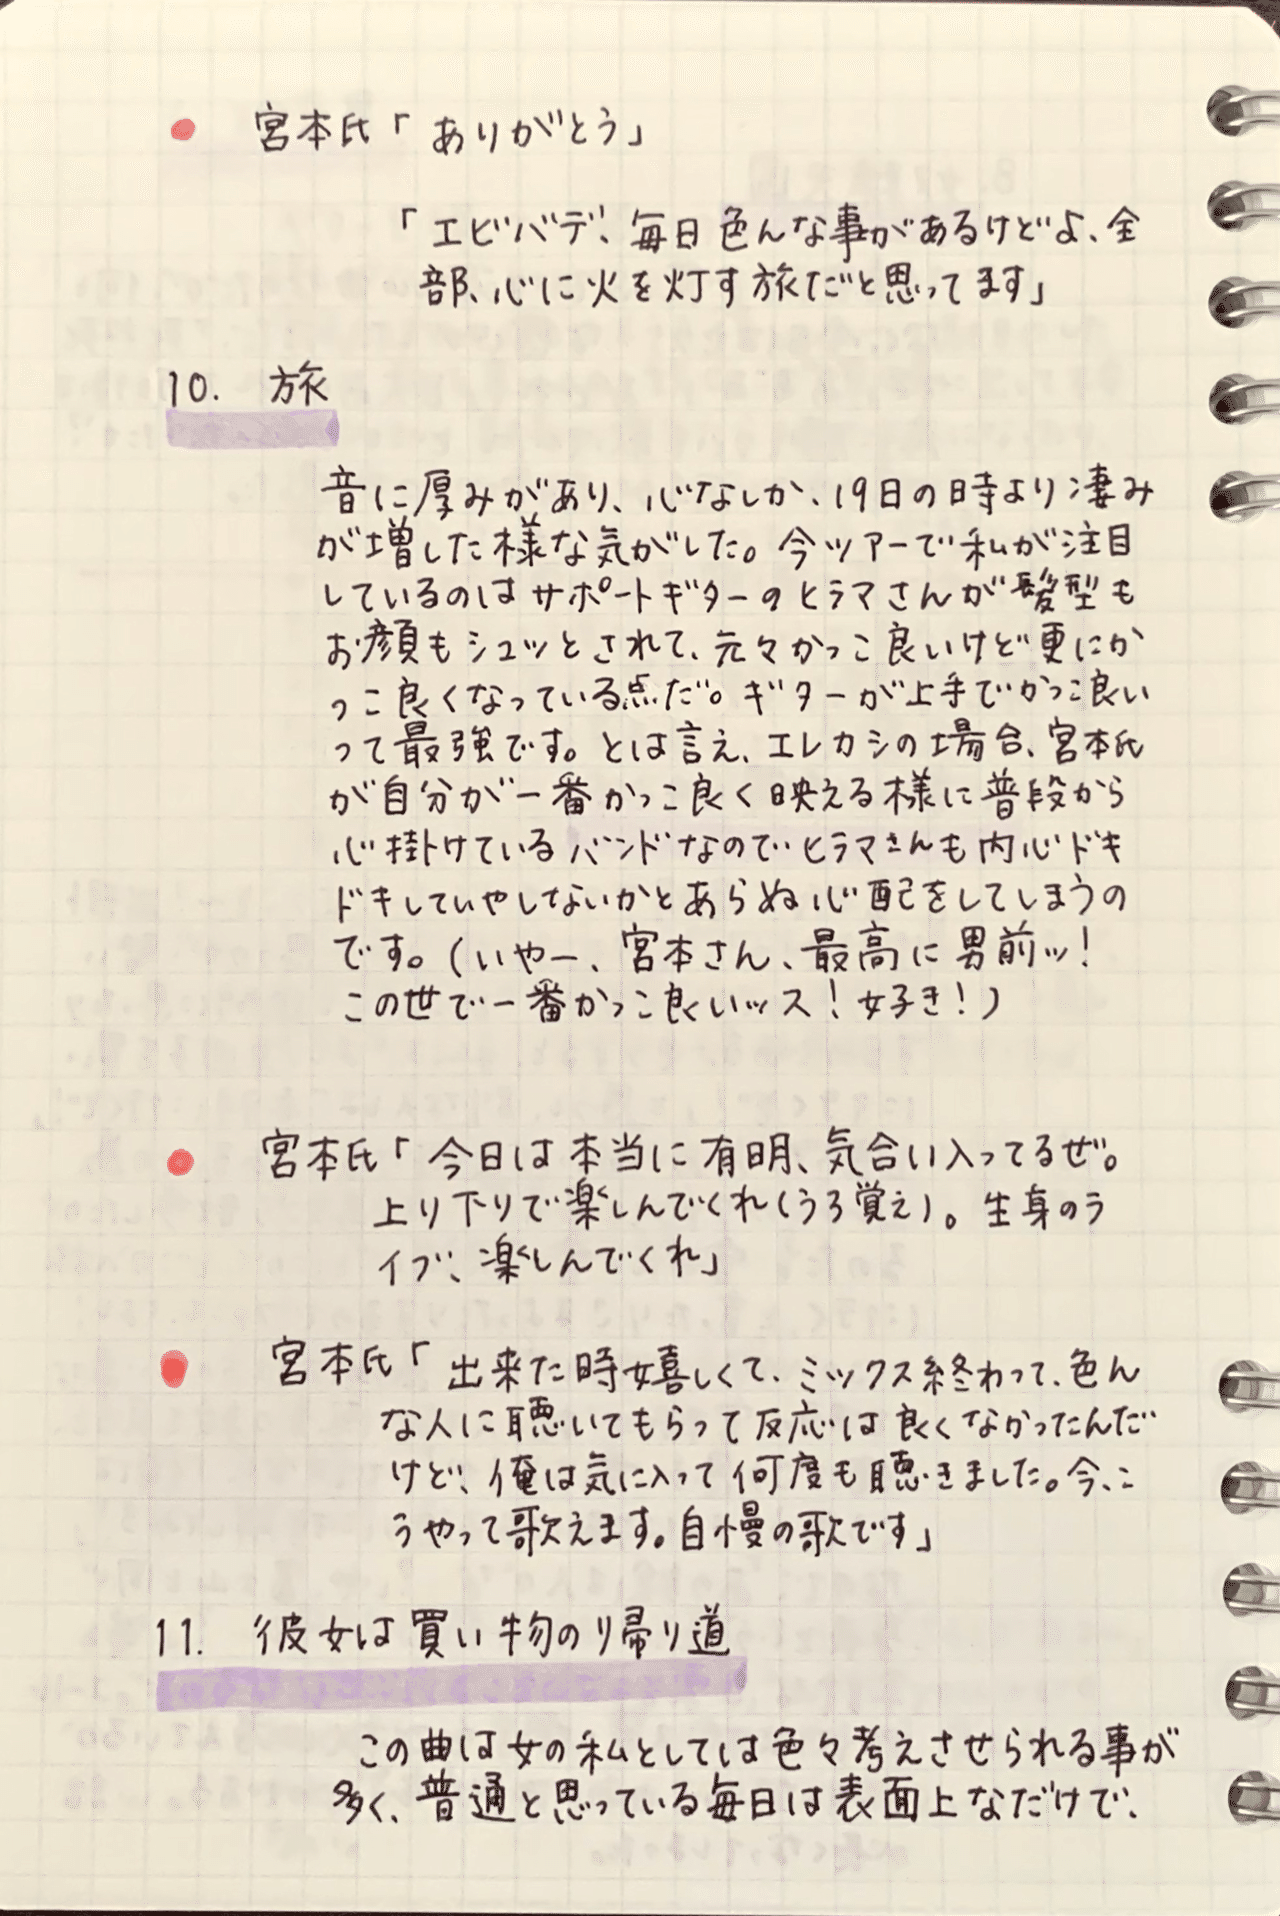 宮本氏「ありがとう」
「エビバデ、毎日色んな事があるけどよ、全
部、心に火を灯す旅だと思ってます」
10. 旅
音に厚みがあり、心なしか、19日の時より凄み
が増した様な気がした。今ツアーで私が注目
しているのはサポートギターのヒラマさんが髪型も
お顔もシュッとされて、元々かっこ良いけど更にか
っこ良くなっている点だ。ギターが上手でかっこ良い
って最強です。とは言え、エレカシの場合、宮本氏
が自分が一番かっこ良く映える様に普段から
心掛けているバンドなのでヒラマさんも内心ドキ
ドキしていやしないかとあらぬ心配をしてしまうの
です。(いやー、宮本さん、最高に男前ッ!
この世で一番かっこ良いッス!好き!)
宮本氏「今日は本当に有明、気合い入ってるぜ。
上り下りで楽しんでくれ(うろ覚え)。生身のラ
イブ、楽しんでくれ」
宮本氏「出来た時嬉しくて、ミックス終わって、色ん
な人に聴いてもらって反応は良くなかったんだ
けど、俺は気に入って何度も聴きました。今、こ
うやって歌えます。自慢の歌です」
11. 彼女は買い物の帰り道
この曲は女の私としては色々考えさせられる事が
多く、普通と思っている毎日は表面上なだけで、